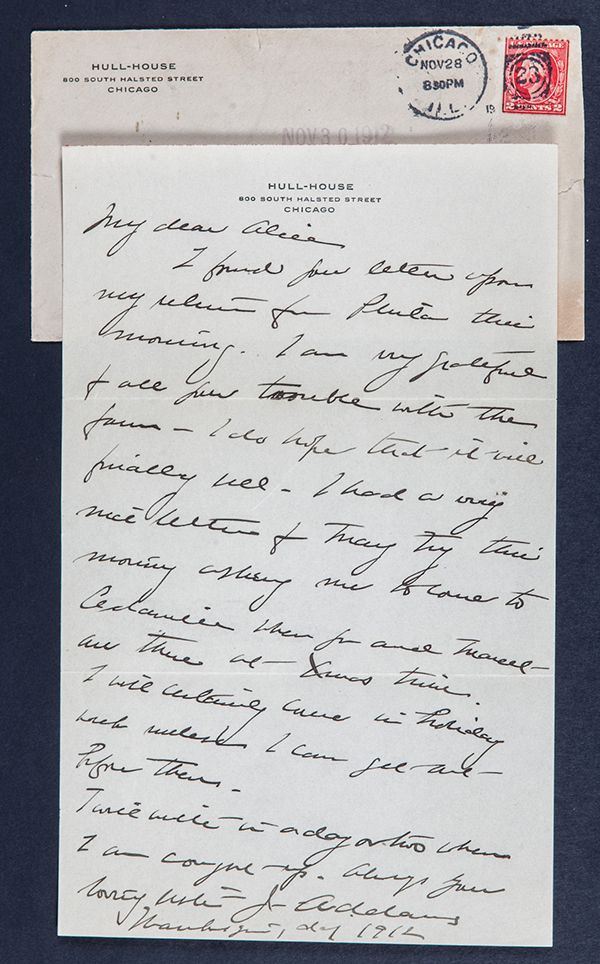 HULL-HOUSE
800 SOUTH HALSTED STREET
CHICAGO
CHICAGO
NOV 28
830PM
ILL.
19
23
2 CENTS 2
NOV 30 1912
HULL-HOUSE
800 SOUTH HALSTED STREET
CHICAGO
My dear Alice
I found your letter upon
my return from this
morning. I am very grateful
for all your trouble with the
farm - I do hope that it will
finally sell - I had a very
nice letter from Mary this
morning asking me to come to
Cedarville when you and Marcet
are there at Xmas time.
I will certainly come in holiday
week unless I can get out
before then.
I will write in a day or two when
I am caught up. Always your
loving J. Addams
Thanksgiving day 1912